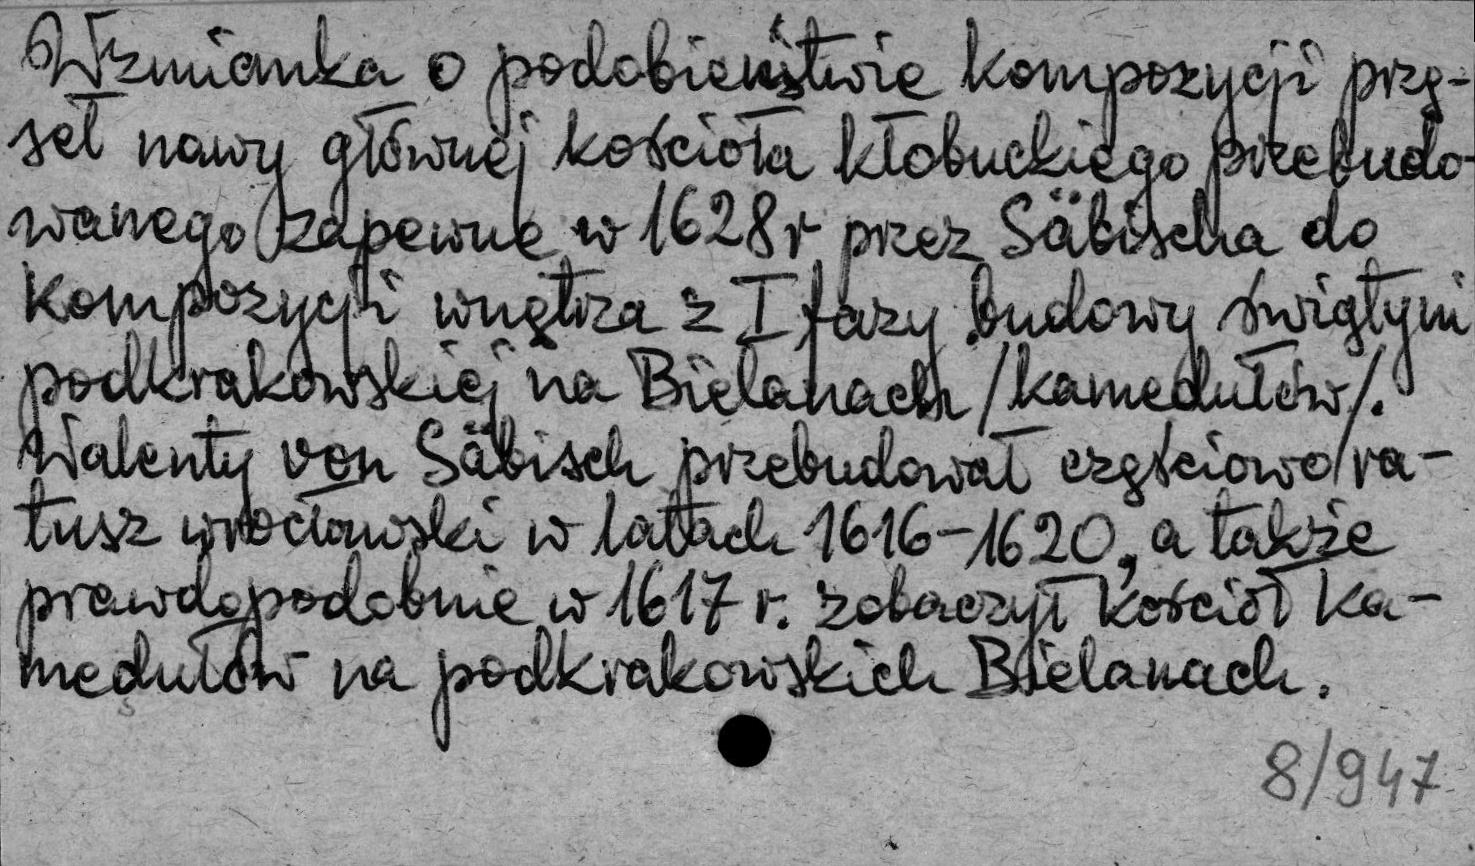 Wzmianka o podobieństwie kompozycji przę-
seł nawy głównej kościoła kłobuckiego przebudo-
wanego zapewne w 1628 r przez Säbischa do
kompozycji wnętrza z I fazy budowy świątyni
podkrakowskiej na Bielanach /kamedułów/.
Walenty von Säbisch przebudował częściowo ra-
tusz wrocławski w latach 1616-1620, a także
prawdopodobnie w 1617 r. zobaczył kościół ka-
medułów na podkrakowskich Bielanach.
8/947